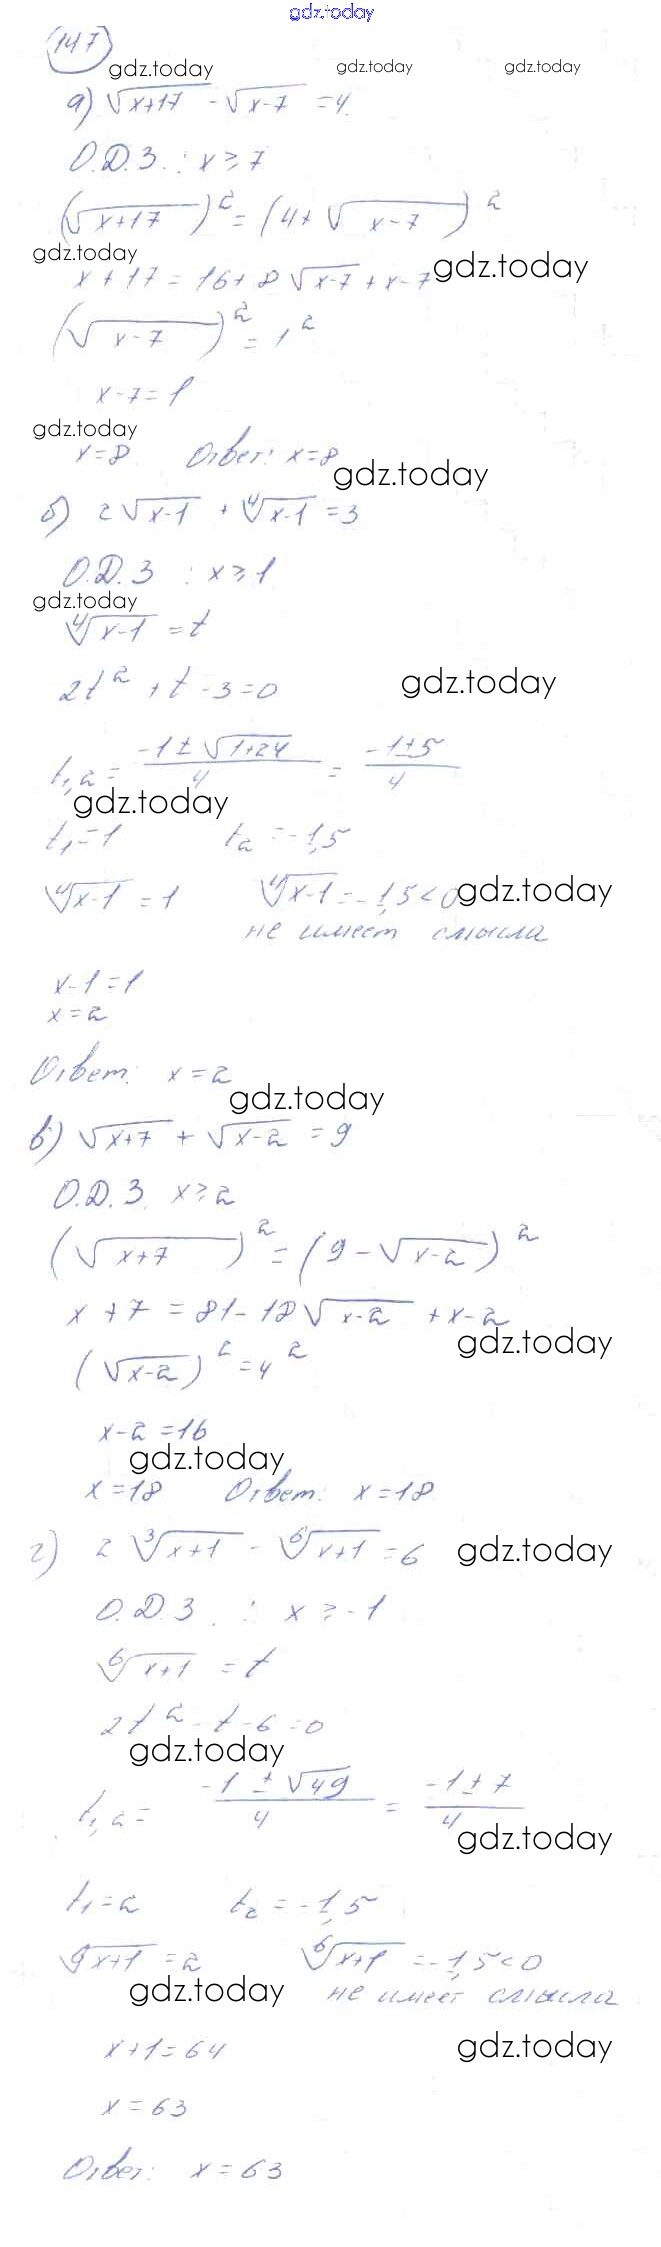 gdz.today
147
gdz.today gdz.today gdz.today
а) √(x+17) - √(x-7) = 4.
О.Д.З. : x ≥ 7
(√(x+17))² = (4+√(x-7))²
gdz.today
x+17 = 16+8√(x-7) + x-7
gdz.today
(√(x-7))² = 1²
x-7=1
gdz.today
x=8 Ответ: x=8
gdz.today
б) 2√(x-1) + ⁴√(x-1) = 3
О.Д.З : x ≥ 1
gdz.today
⁴√(x-1) = t
2t² + t - 3 = 0
gdz.today
t₁,₂ = (-1 ± √(1+24))/4 = (-1±5)/4
gdz.today
t₁=1 t₂ = -1,5
⁴√(x-1) = 1 ⁴√(x-1) = -1,5 < 0
gdz.today
не имеет смысла
x-1=1
x=2
Ответ: x=2
gdz.today
в) √(x+7) + √(x-2) = 9
О.Д.З. x ≥ 2
(√(x+7))² = (9-√(x-2))²
x+7 = 81-18√(x-2) + x-2
gdz.today
(√(x-2))² = 4²
x-2=16
gdz.today
x=18 Ответ: x=18
г) 2 ³√(x+1) - ⁶√(x+1) = 6
gdz.today
О.Д.З. : x ≥ -1
⁶√(x+1) = t
2t² - t - 6 = 0
gdz.today
t₁,₂ = (-1 ± √49)/4 = (-1±7)/4
gdz.today
t₁=2 t₂ = -1,5
√(x+1) = 2 ⁶√(x+1) = -1,5 < 0
gdz.today
не имеет смысла
x+1=64
gdz.today
x=63
Ответ: x=63